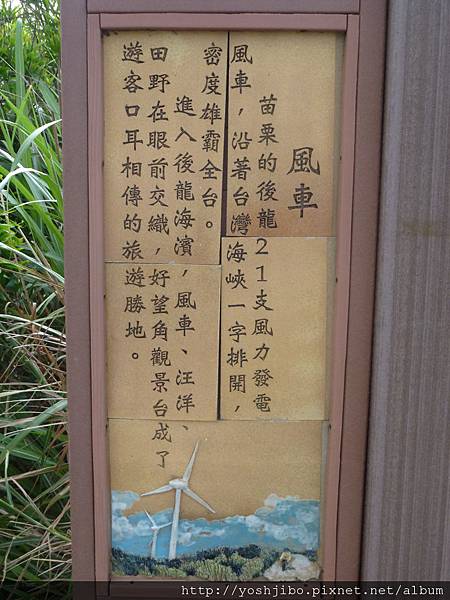 風車
苗栗的後龍21支風力發電
風車，沿著台灣海峽一字排開，
密度雄霸全台。
進入後龍海濱，風車、汪洋、
田野在眼前交織，好望角觀景台成了
遊客口耳相傳的旅遊勝地。
http://yoshjibo.pixnet.net/album